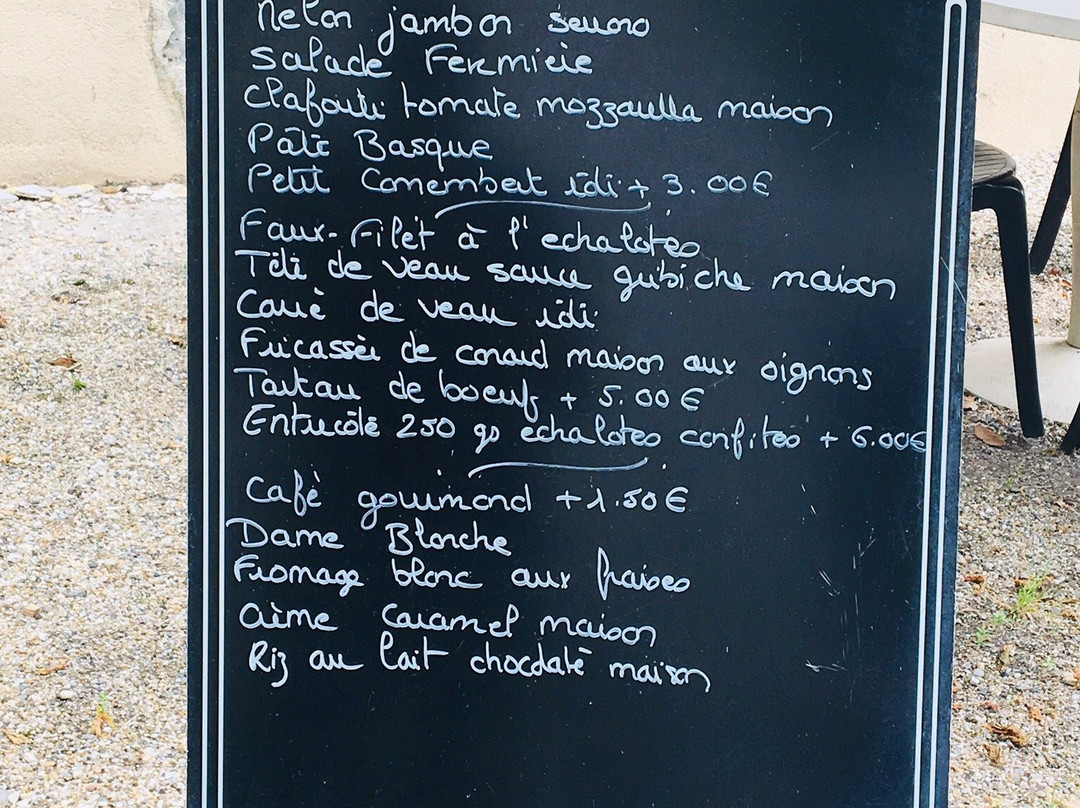 Melon jambon serrano
Salade Fermière
Clafouti tomate mozzarella maison
Pâté Basque
Petit Camembert rôti + 3.00€
Faux-Filet à l'echalotes
Tête de veau sauce gribiche maison
Carré de veau rôti
Fricassée de canard maison aux oignons
Tartare de boeuf + 5.00€
Entrecôte 250 grs echalotes confites + 6.00€
Café gourmand + 1.50€
Dame Blanche
Fromage blanc aux fraises
Crème Caramel maison
Riz au lait chocolaté maison